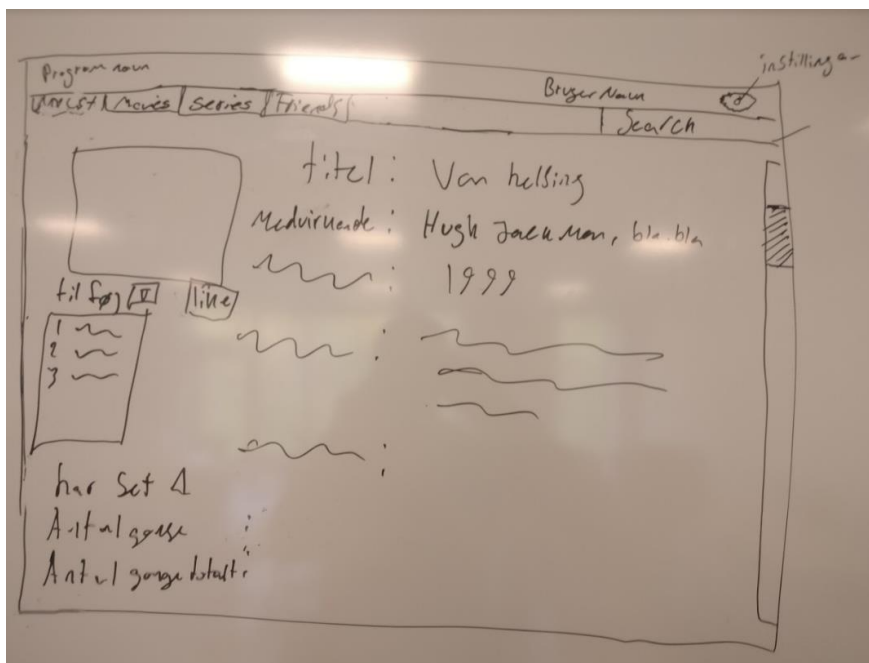 Program navn
instillinger
Bruger Navn
Movies Series Friends
Search
titel: Van helsing
Medvirkende: Hugh Jackman, bla.bla
: 1999
tilføj V like
:
1
2
3
:
har set
Antal gange :
Antal gange totalt: